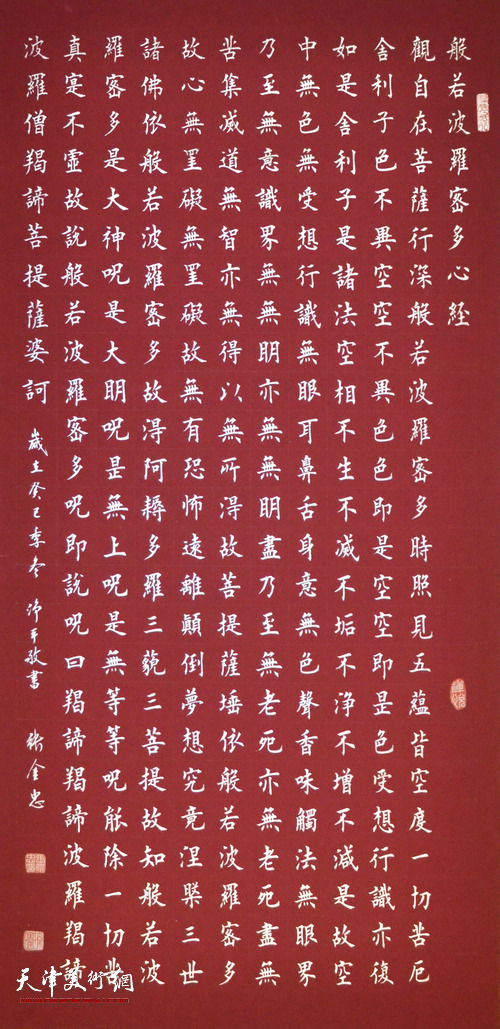 般若波羅密多心經
觀自在菩薩行深般若波羅密多時照見五蘊皆空度一切苦厄
舍利子色不異空空不異色色即是空空即是色受想行識亦復
如是舍利子是諸法空相不生不滅不垢不淨不增不減是故空
中無色無受想行識無眼耳鼻舌身意無色聲香味觸法無眼界
乃至無意識界無無明亦無無明盡乃至無老死亦無老死盡無
苦集滅道無智亦無得以無所得故菩提薩埵依般若波羅密多
故心無罣礙無罣礙故無有恐怖遠離顛倒夢想究竟涅槃三世
諸佛依般若波羅密多故得阿耨多羅三藐三菩提故知般若波
羅密多是大神呪是大明呪是無上呪是無等等呪能除一切苦
真寔不虛故說般若波羅密多呪即說呪曰羯諦羯諦波羅羯諦
波羅僧羯諦菩提薩婆訶 歲在癸巳季冬 敬書 張金忠
天津美術網